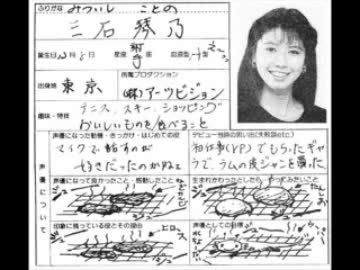 ふりがな みついし ことの
三石琴乃
誕生日 12月8日 星座 射手 血液型 A型
出身地 東京 所属プロダクション (株)アーツビジョン
趣味・特技 テニス、スキー、ショッピング
おいしいものを食べること
声優について
声優になった動機・きっかけ・はじめての役
マイクで話すのが
好きだった
デビュー当時の思い出(失敗談etc)
初仕事(VP)でもらったギャラで、ラムの皮ジャンを買った
声優になって良かったこと・感動したこと
生まれかわったとしたら
印象に残っている役とその理由
声優としての目標